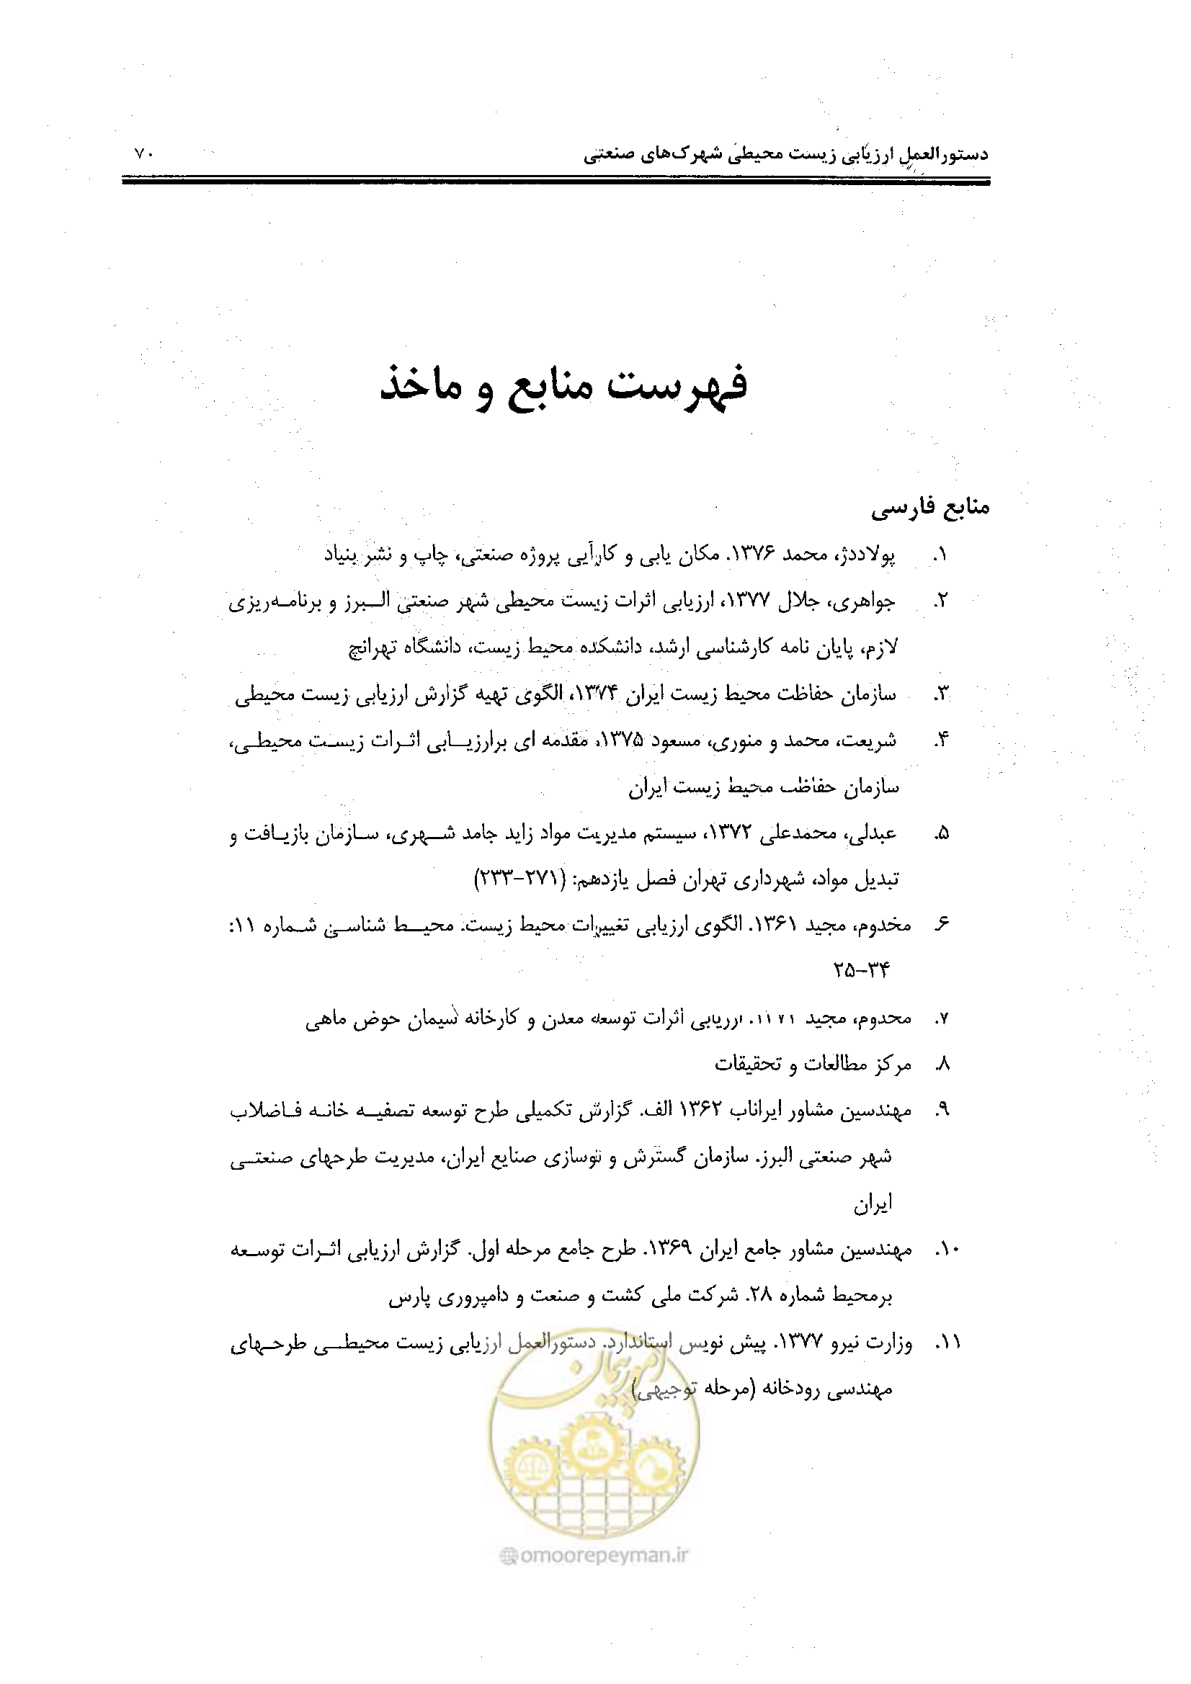 دستورالعمل ارزیابی زیست محیطی شهرک‌های صنعتی ۷۰
فهرست منابع و ماخذ
منابع فارسی
۱. پولاددژ، محمد ۱۳۷۶. مکان یابی و کارآیی پروژه صنعتی، چاپ و نشر بنیاد
۲. جواهری، جلال ۱۳۷۷، ارزیابی اثرات زیست محیطی شهر صنعتی البرز و برنامه‌ریزی
لازم، پایان نامه کارشناسی ارشد، دانشکده محیط زیست، دانشگاه تهرانچ
۳. سازمان حفاظت محیط زیست ایران ۱۳۷۴، الگوی تهیه گزارش ارزیابی زیست محیطی
۴. شریعت، محمد و منوری، مسعود ۱۳۷۵، مقدمه ای برارزیابی اثرات زیست محیطی،
سازمان حفاظت محیط زیست ایران
۵. عبدلی، محمدعلی ۱۳۷۲، سیستم مدیریت مواد زاید جامد شهری، سازمان بازیافت و
تبدیل مواد، شهرداری تهران فصل یازدهم: (۲۷۱-۲۳۳)
۶. مخدوم، مجید ۱۳۶۱. الگوی ارزیابی تغییرات محیط زیست. محیط شناسی شماره ۱۱:
۲۵-۳۴
۷. مخدوم، مجید ارزیابی اثرات توسعه معدن و کارخانه سیمان حوض ماهی
۸. مرکز مطالعات و تحقیقات
۹. مهندسین مشاور ایراناب ۱۳۶۲ الف. گزارش تکمیلی طرح توسعه تصفیه خانه فاضلاب
شهر صنعتی البرز. سازمان گسترش و نوسازی صنایع ایران، مدیریت طرحهای صنعتی
ایران
۱۰. مهندسین مشاور جامع ایران ۱۳۶۹. طرح جامع مرحله اول. گزارش ارزیابی اثرات توسعه
برمحیط شماره ۲۸. شرکت ملی کشت و صنعت و دامپروری پارس
۱۱. وزارت نیرو ۱۳۷۷. پیش نویس استاندارد. دستورالعمل ارزیابی زیست محیطی طرحهای
مهندسی رودخانه (مرحله توجیهی)
امور پیمان
omoorepeyman.ir